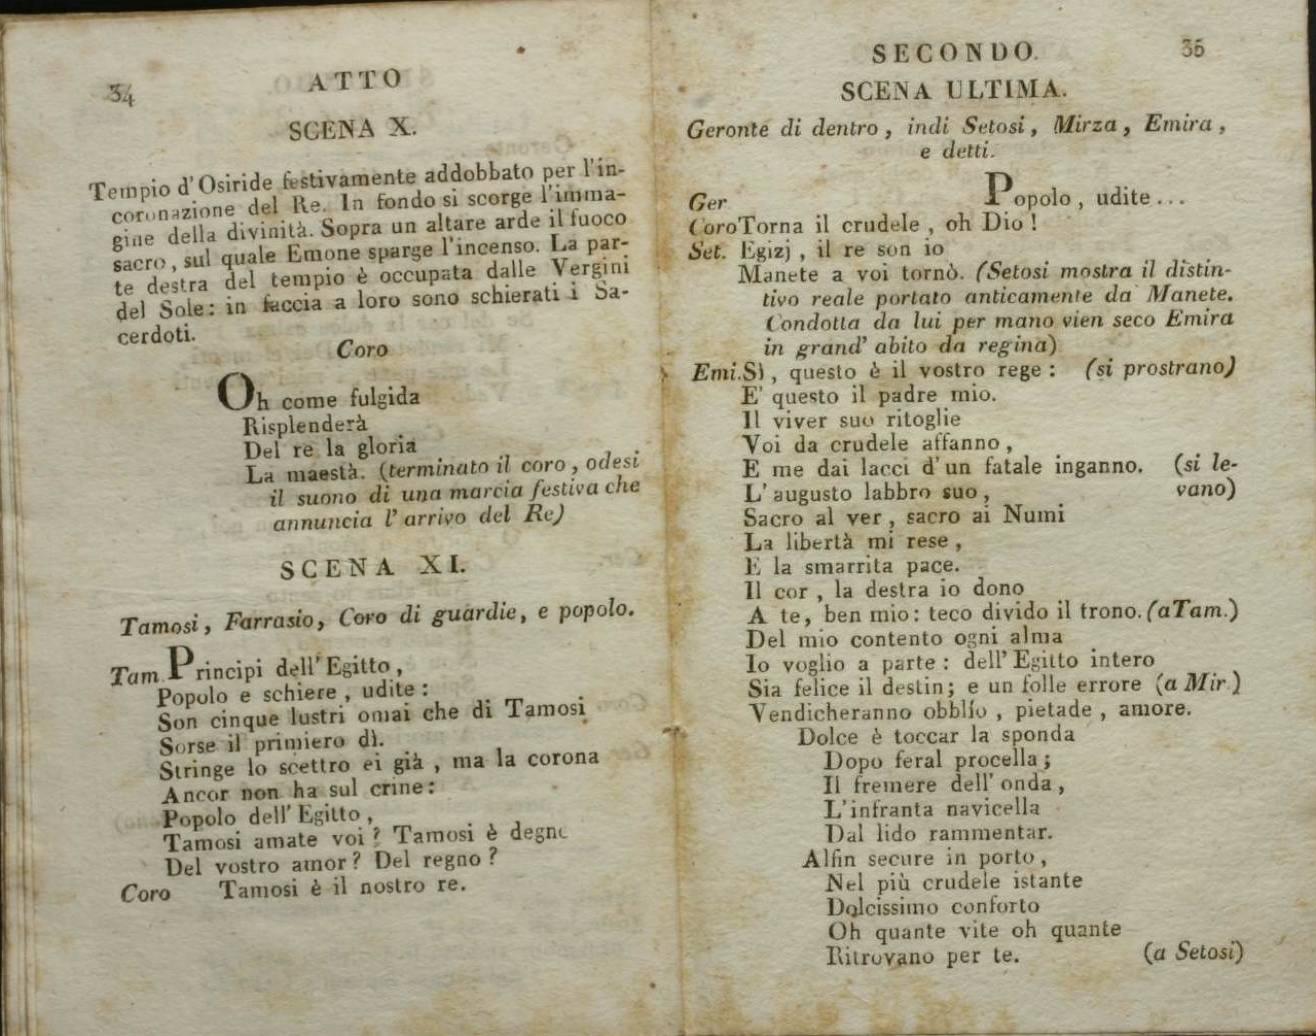 34
ATTO
SCENA X.
Tempio d'Osiride festivamente addobbato per l'in-
coronazione del Re. In fondo si scorge l'imma-
gine della divinità. Sopra un altare arde il fuoco
sacro, sul quale Emone sparge l'incenso. La par-
te destra del tempio è occupata dalle Vergini
del Sole: in faccia a loro sono schierati i Sa-
cerdoti.
Coro
Oh come fulgida
Risplenderà
Del re la gloria
La maestà. (terminato il coro, odesi
il suono di una marcia festiva che
annuncia l'arrivo del Re)
SCENA XI.
Tamosi, Farrasio, Coro di guardie, e popolo.
Tam. Principi dell'Egitto,
Popolo e schiere, udite:
Son cinque lustri omai che di Tamosi
Sorse il primiero dì.
Stringe lo scettro ei già, ma la corona
Ancor non ha sul crine:
Popolo dell'Egitto,
Tamosi amate voi? Tamosi è degno
Del vostro amor? Del regno?
Coro Tamosi è il nostro re.
SECONDO.
35
SCENA ULTIMA.
Geronte di dentro, indi Setosi, Mirza, Emira,
e detti.
Ger Popolo, udite...
Coro Torna il crudele, oh Dio!
Set. Egizj, il re son io
Manete a voi tornò. (Setosi mostra il distin-
tivo reale portato anticamente da Manete.
Condotta da lui per mano vien seco Emira
in grand' abito da regina)
Emi. Sì, questo è il vostro rege: (si prostrano)
E' questo il padre mio.
Il viver suo ritoglie
Voi da crudele affanno,
E me dai lacci d'un fatale inganno. (si le-
L'augusto labbro suo, vano)
Sacro al ver, sacro ai Numi
La libertà mi rese,
E la smarrita pace.
Il cor, la destra io dono
A te, ben mio: teco divido il trono. (a Tam.)
Del mio contento ogni alma
Io voglio a parte: dell'Egitto intero
Sia felice il destin; e un folle errore (a Mir.)
Vendicheranno obblío, pietade, amore.
Dolce è toccar la sponda
Dopo feral procella;
Il fremere dell'onda,
L'infranta navicella
Dal lido rammentar.
Alfin secure in porto,
Nel più crudele istante
Dolcissimo conforto
Oh quante vite oh quante
Ritrovano per te. (a Setosi)